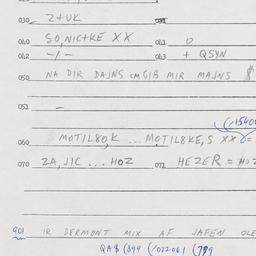 020
030 Z+UK 031
040 SO,NICTKE XX 041 0
042 -/- 043 + QSYN
050 NA DIR DAJNS CMGIB MIR MAJNS
051 -
(1540
060 MOTIL8O,K ... MOTIL8KE,S XX
070 ZA,JIC ... HOZ 071 HEZER = HOZ
901 IR DERMONT MIX AF JAFEN OLE
QA$ (844 (/022061 (749